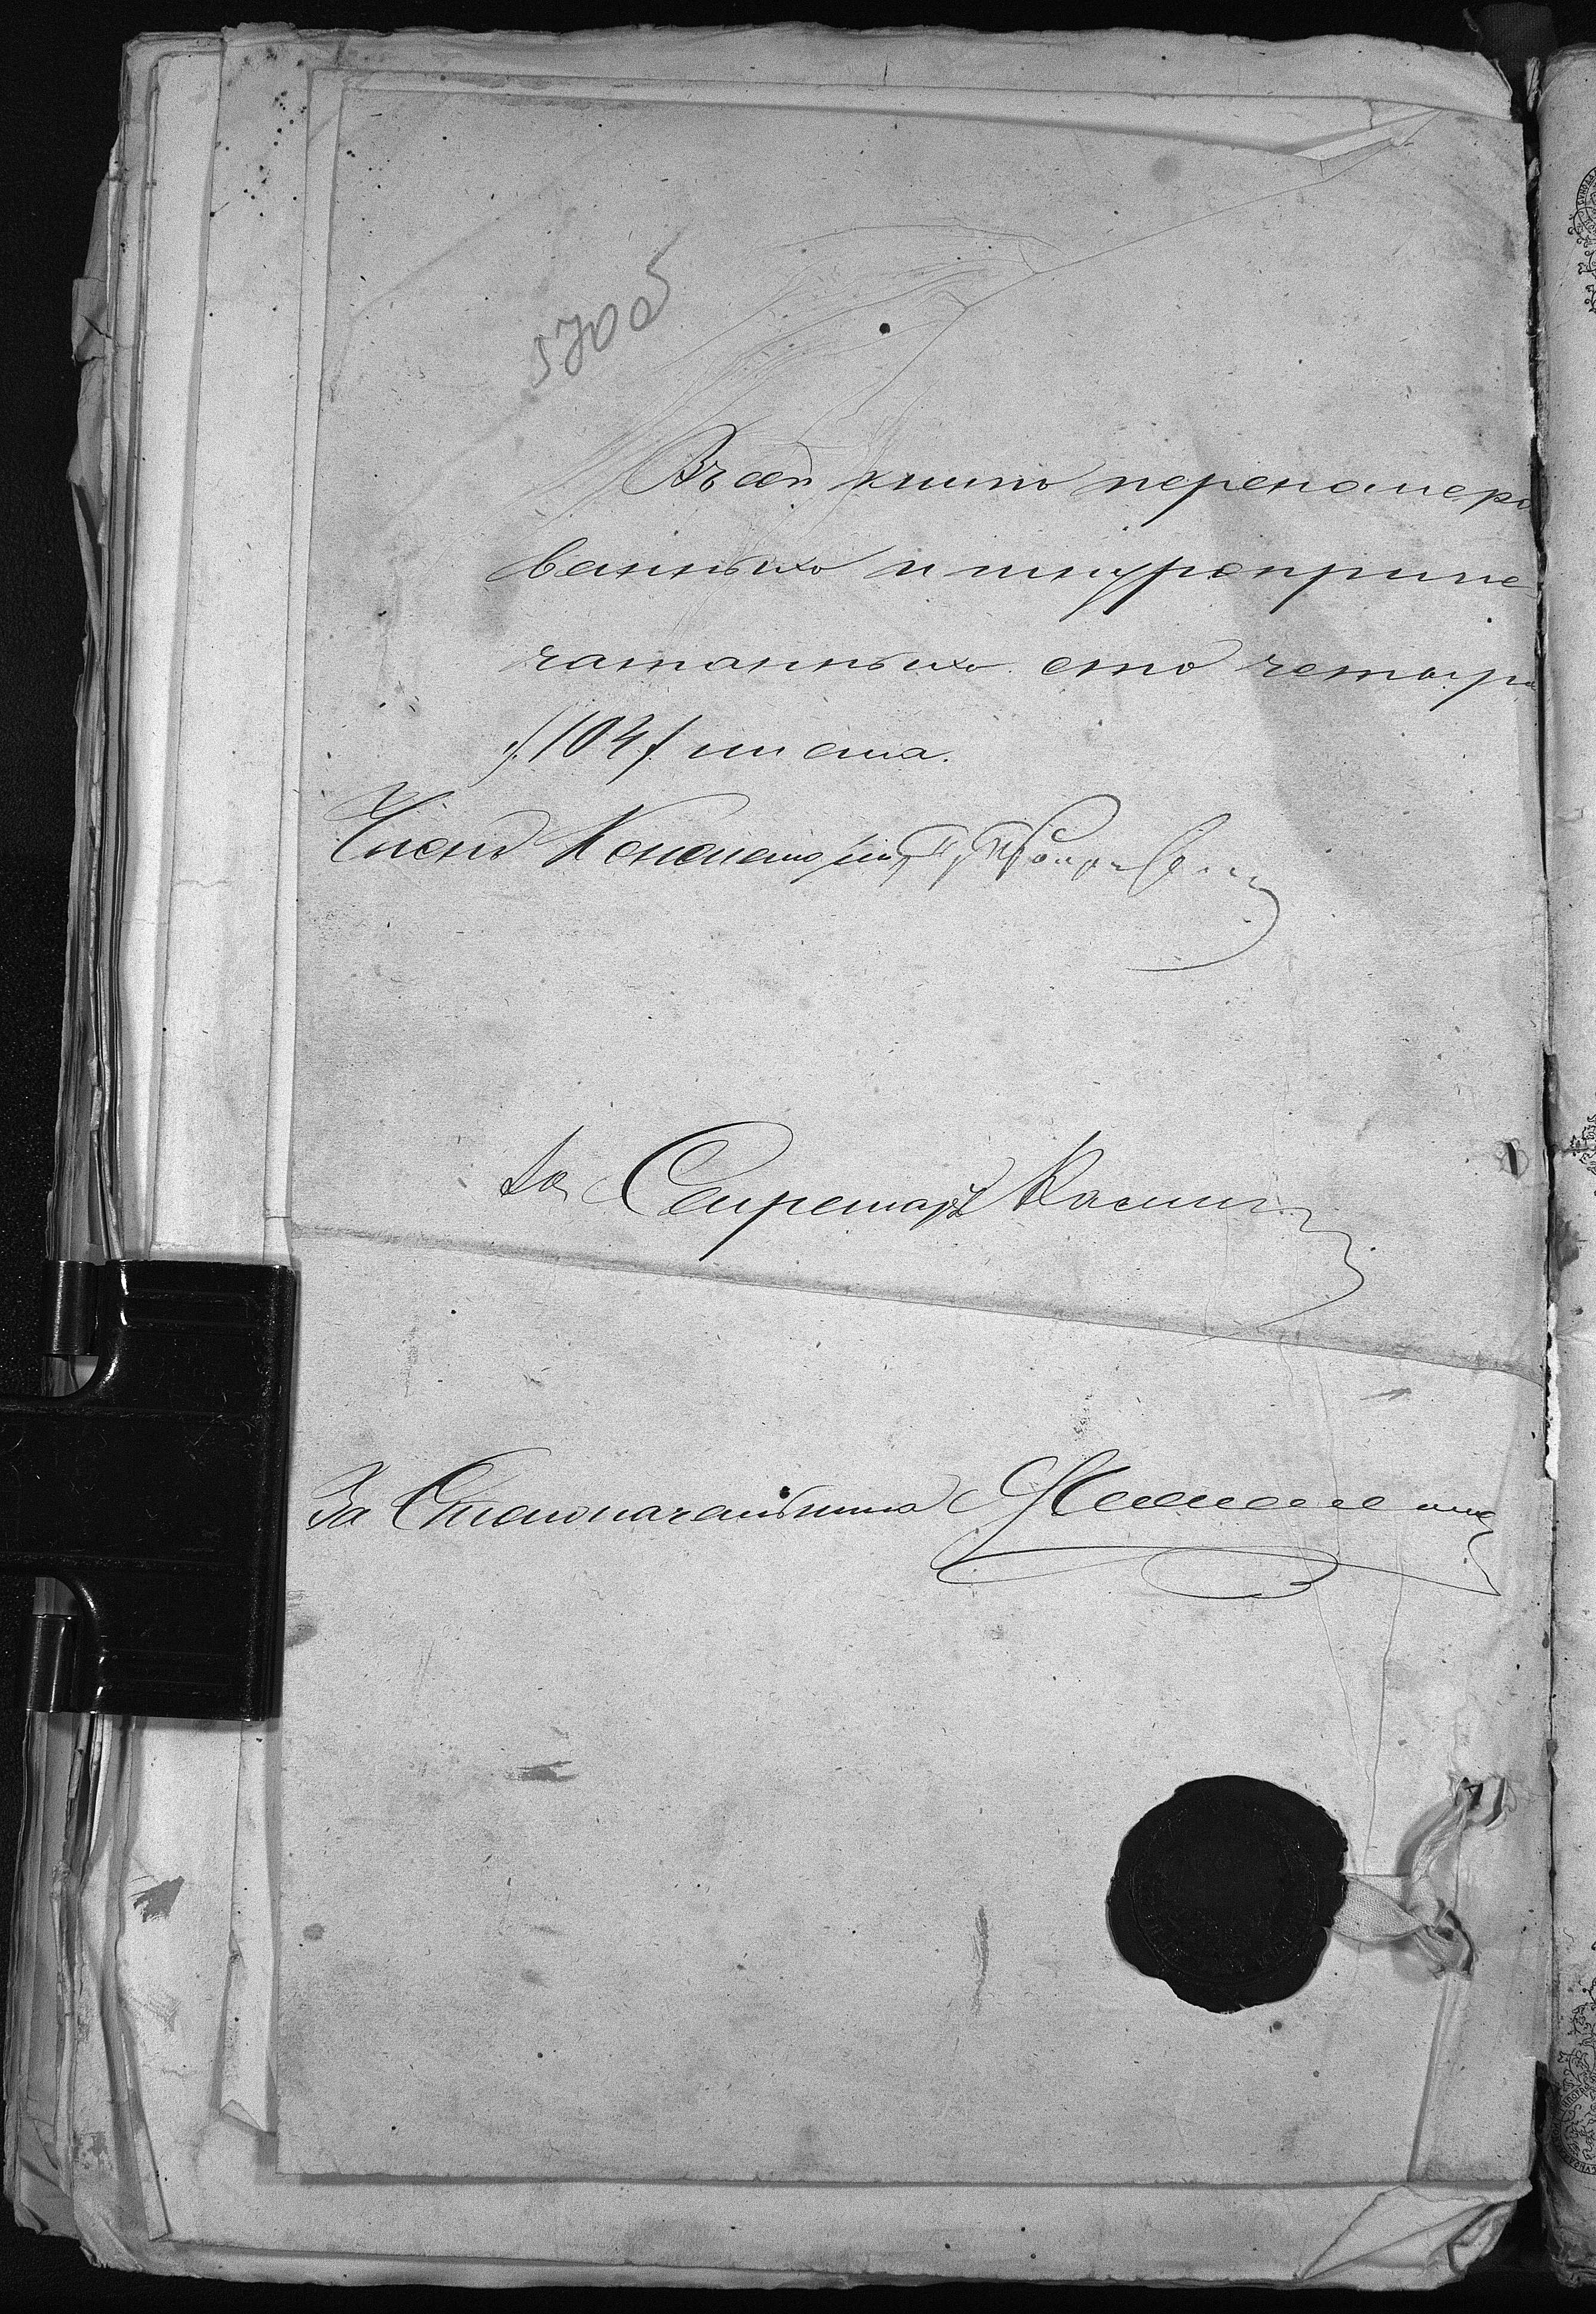 570об
Въ сей книгѣ перенумеро
ванныхъ и шнуроприпе
чатанныхъ сто четыре
/104/ листа.
Членъ Консисторіи
За Секретаря
За Столоначальника